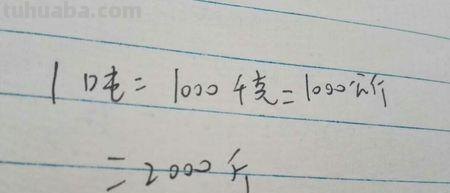 tuhuaba.com
1吨=1000千克=1000公斤
=2000斤